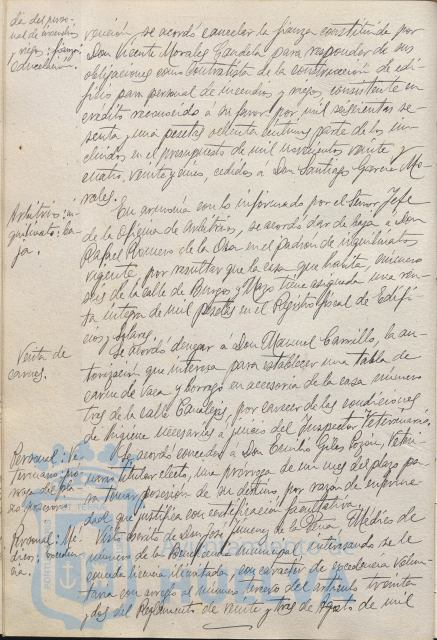 da del perso-
nal de incendios
y riego: fianza:
cancelación.
vención, se acordó cancelar la fianza constituida por
Don Vicente Morales Gandela para responder de sus
obligaciones como contratista de la construcción de edi-
ficio para personal de incendios y riegos, consistente en
crédito reconocido a su favor por mil seiscientas se-
senta y una pesetas ochenta céntimos, parte de los in-
cluidos en el presupuesto de mil novecientos veinte y
cuatro, veinte y cinco, cedidos a Don Santiago García Mo-
rales.
Arbitrios: in-
quilinato: ba-
ja.
En armonía con lo informado por el Señor Jefe
de la oficina de Arbitrios, se acordó dar de baja a Don
Rafael Romero de la Osa en el padrón de inquilinatos
vigente, por resultar que la casa que habita número
seis de la calle de Burgos y Mazo tiene asignada una ren-
ta íntegra de mil pesetas en el Registro fiscal de Edifi-
cios y Solares.
Venta de
carnes.
Se acordó denegar a Don Manuel Carrillo, la au-
torización que interesa para establecer una tabla de
carne de vaca y borrego en accesoria de la casa número
tres de la calle Canalejas, por carecer de las condiciones
de higiene necesarias a juicio del Inspector Veterinario.
Personal: Ve-
terinario: pró-
rroga del pla-
zo posesorio.
Se acordó conceder a Don Emilio Giles Pozón, Vete-
rinario titular electo, una prórroga de un mes del plazo pa-
ra tomar posesión de su destino, por razón de enferme-
dad que justifica con certificación facultativa.
Personal: Mé-
dico: exceden-
cia.
Visto escrito de Don José Jimenez de la Peña, Médico de
número de la Beneficencia municipal interesando se le
conceda licencia ilimitada, con carácter de excedencia volun-
taria con arreglo al número tercero del artículo treinta
y dos del Reglamento de veinte y tres de Agosto de mil